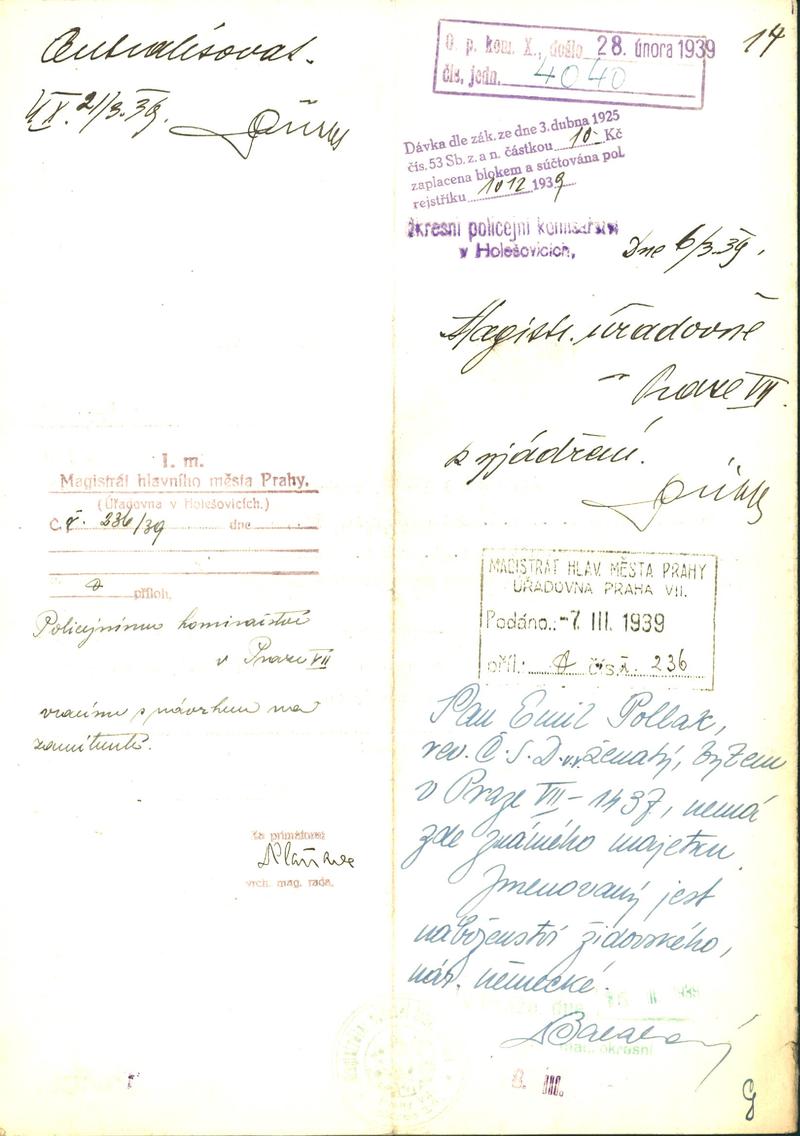 Centralisovat.
VII. 21/3.39.
I. m.
Magistrát hlavního města Prahy.
(Úřadovna v Holešovicích.)
Č. ř. 236/39 dne
příloh.
Policejnímu komisařství
v Praze VII
vracíme s návrhem na
zamítnutí.
Za primátora:
vrch. mag. rada.
14
O. p. kom. X., došlo 28. února 1939
čís. jedn. 4040
Dávka dle zák. ze dne 3. dubna 1925
čís. 53 Sb. z. a n. částkou 10 Kč
zaplacena blokem a súčtována pol.
rejstříku 1012 1939
Okresní policejní komisařství
v Holešovicích,
Dne 6/3.39.
Magistr. úřadovně
Praze VII.
k vyjádření.
MAGISTRÁT HLAV. MĚSTA PRAHY
ÚŘADOVNA PRAHA VII.
Podáno: -7 III. 1939
příl.: čís. 236
Pan Emil Pollak,
rev. Č.S.D. v.v. ženatý, bytem
v Praze VII - 1437, nemá
zde známého majetku.
Jmenovaný jest
náboženství židovského,
nár. německé.
8. III.